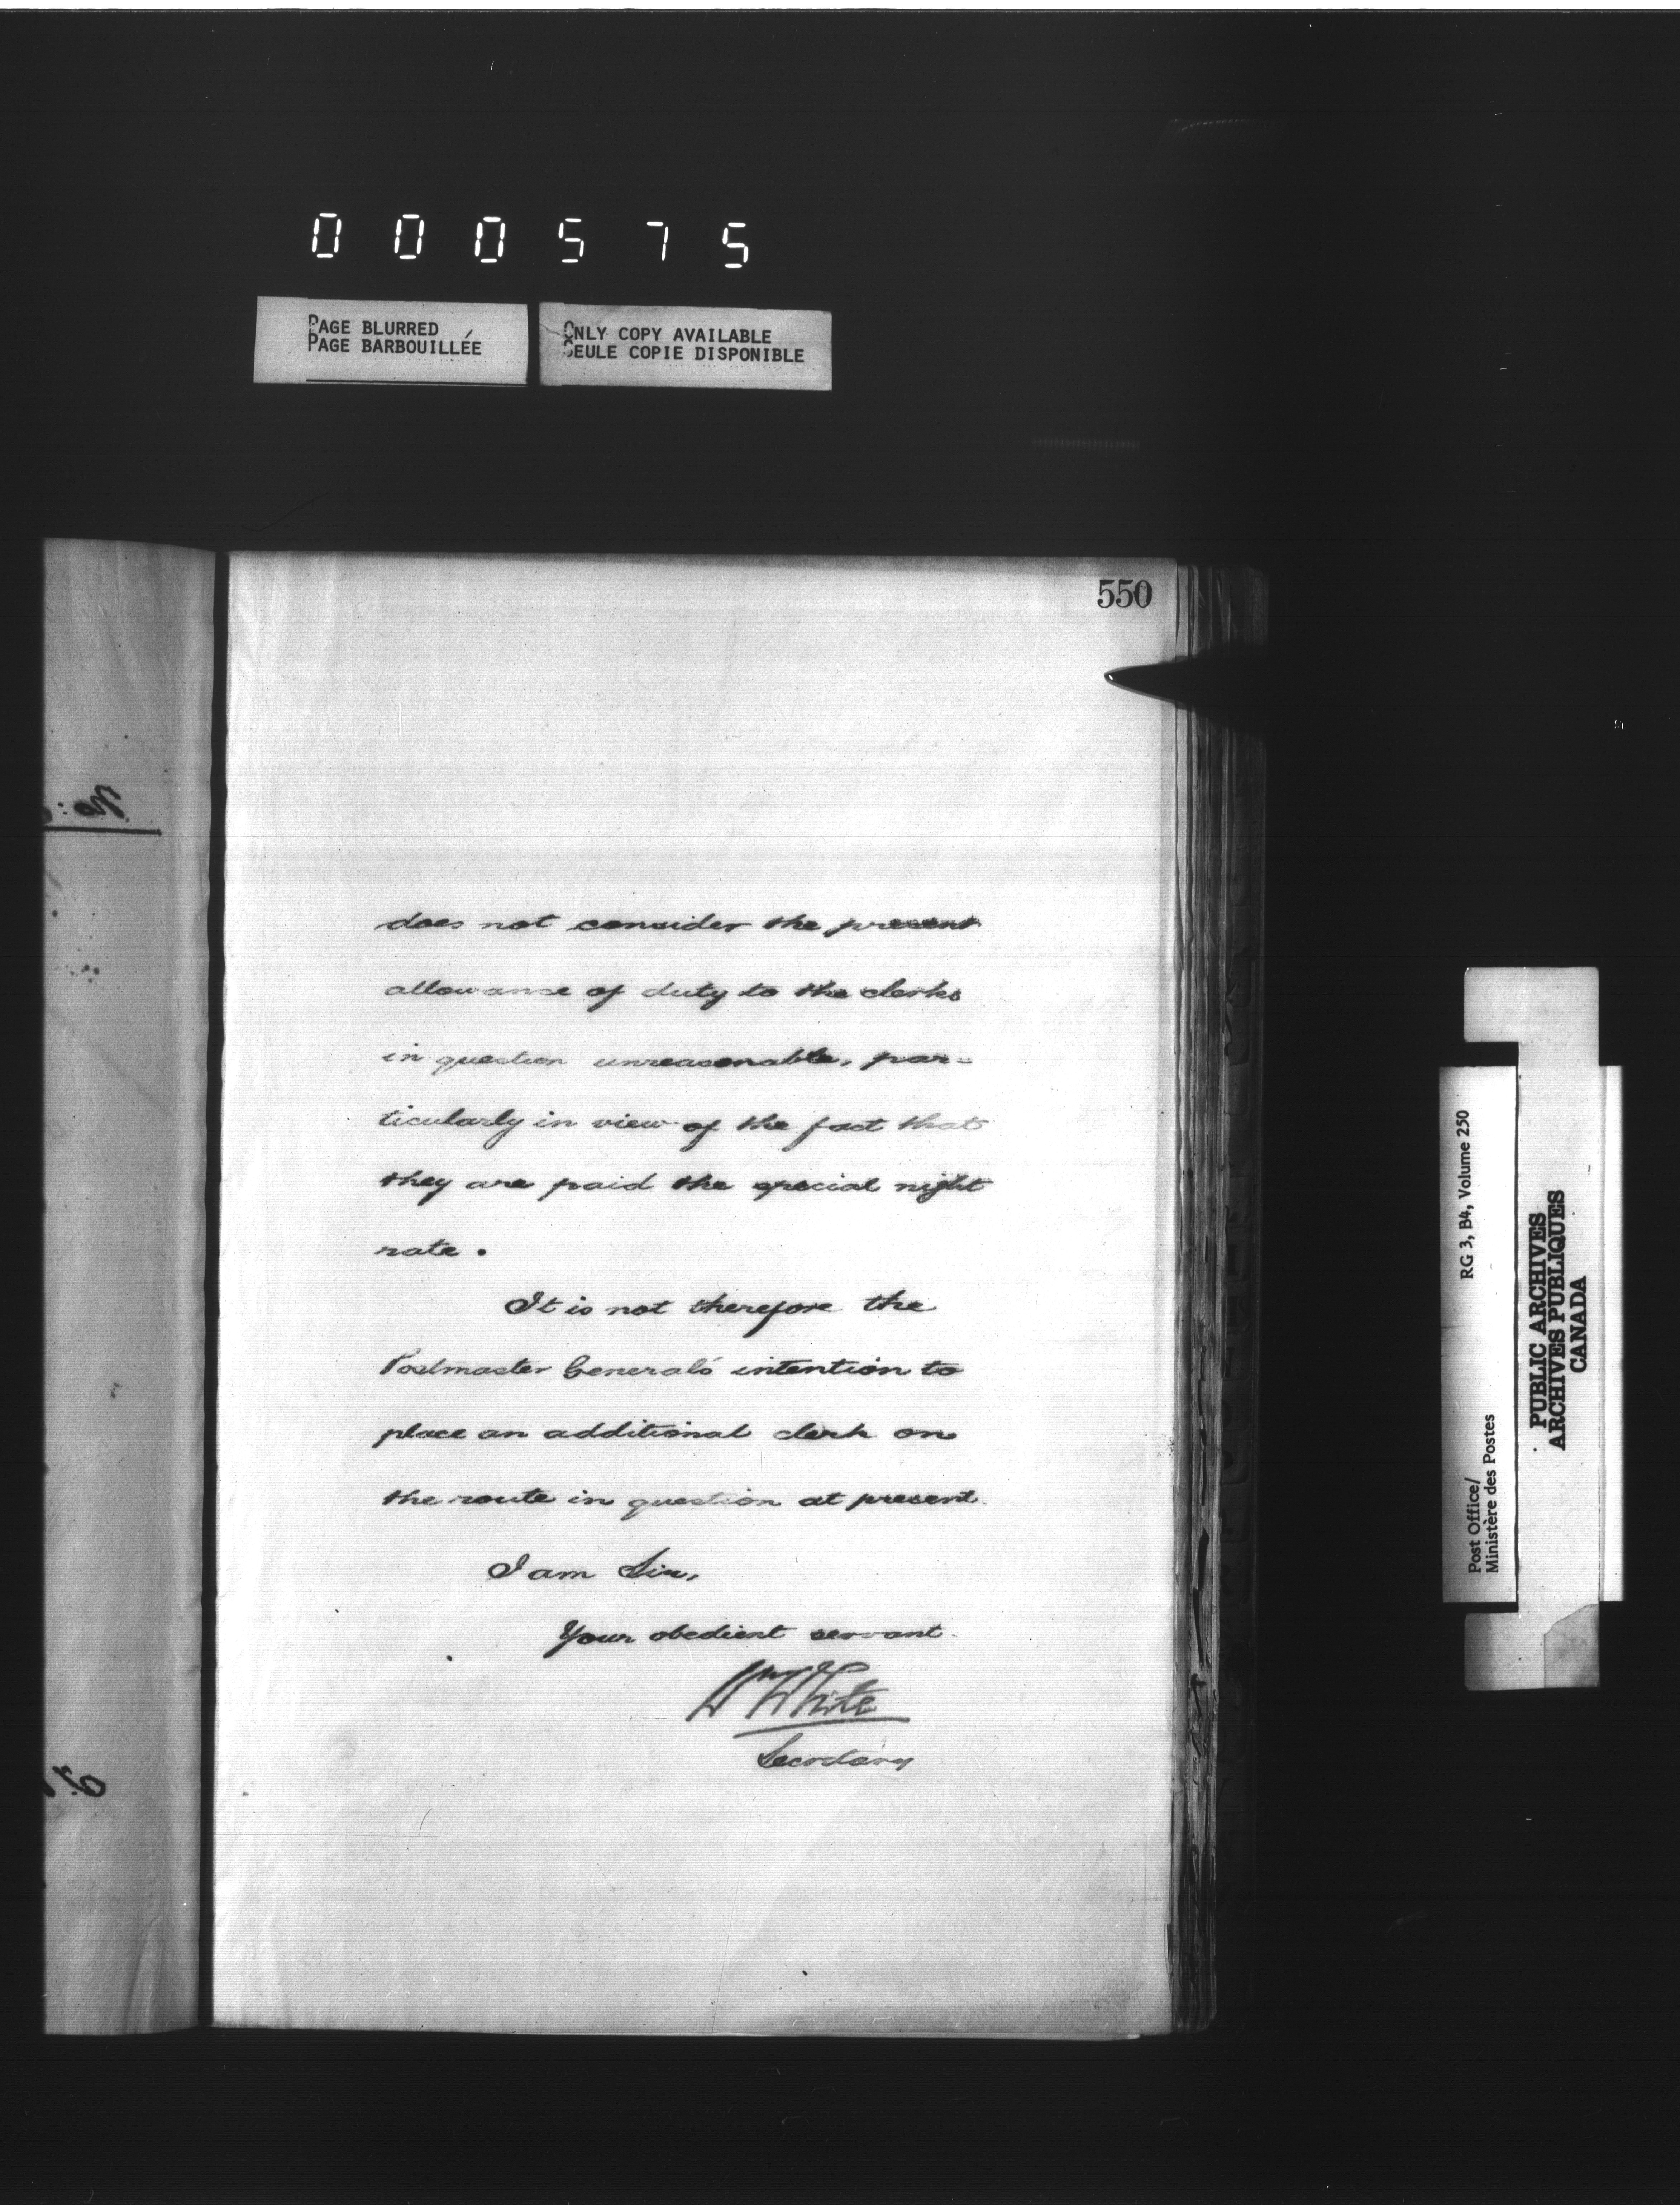 000575
PAGE BLURRED
PAGE BARBOUILLÉE
ONLY COPY AVAILABLE
SEULE COPIE DISPONIBLE
550
does not consider the present
allowance of duty to the clerks
in question unreasonable, par=
ticularly in view of the fact that
they are paid the special night
rate.
It is not therefore the
Postmaster General's intention to
place an additional clerk on
the route in question at present.
I am Sir,
Your obedient servant.
Wm White
Secretary
RG 3, B4, Volume 250
Post Office/
Ministère des Postes
PUBLIC ARCHIVES
ARCHIVES PUBLIQUES
CANADA